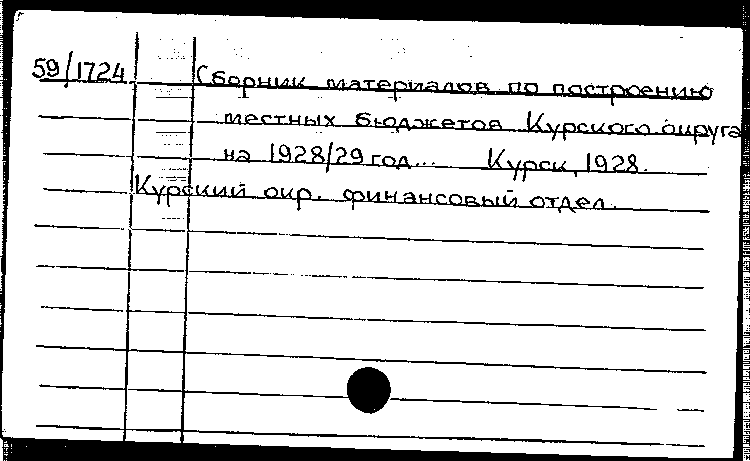 59/1724 Сборник материалов по построению
местных бюджетов Курского округа
на 1928/29 год... Курск, 1928.
Курский окр. финансовый отдел.